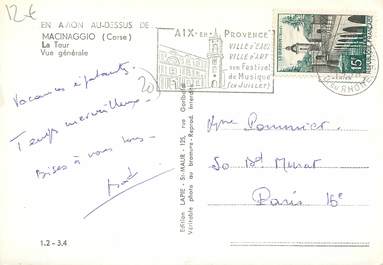 12€
EN AVION AU-DESSUS DE
MACINAGGIO (Corse)
La Tour
Vue générale
Vacances épatantes.
Temps merveilleux.
Bises à vous tous.
1.2 - 3.4
Edition LAPIE - St-MAUR - 125, rue Garibaldi
Véritable photo au bromure - Reprod. interdite
AIX-EN-PROVENCE
VILLE D'EAU
VILLE D'ART
son Festival
de Musique
(en Juillet)
15F
20
Pommier
50 Bd Murat
Paris 16e